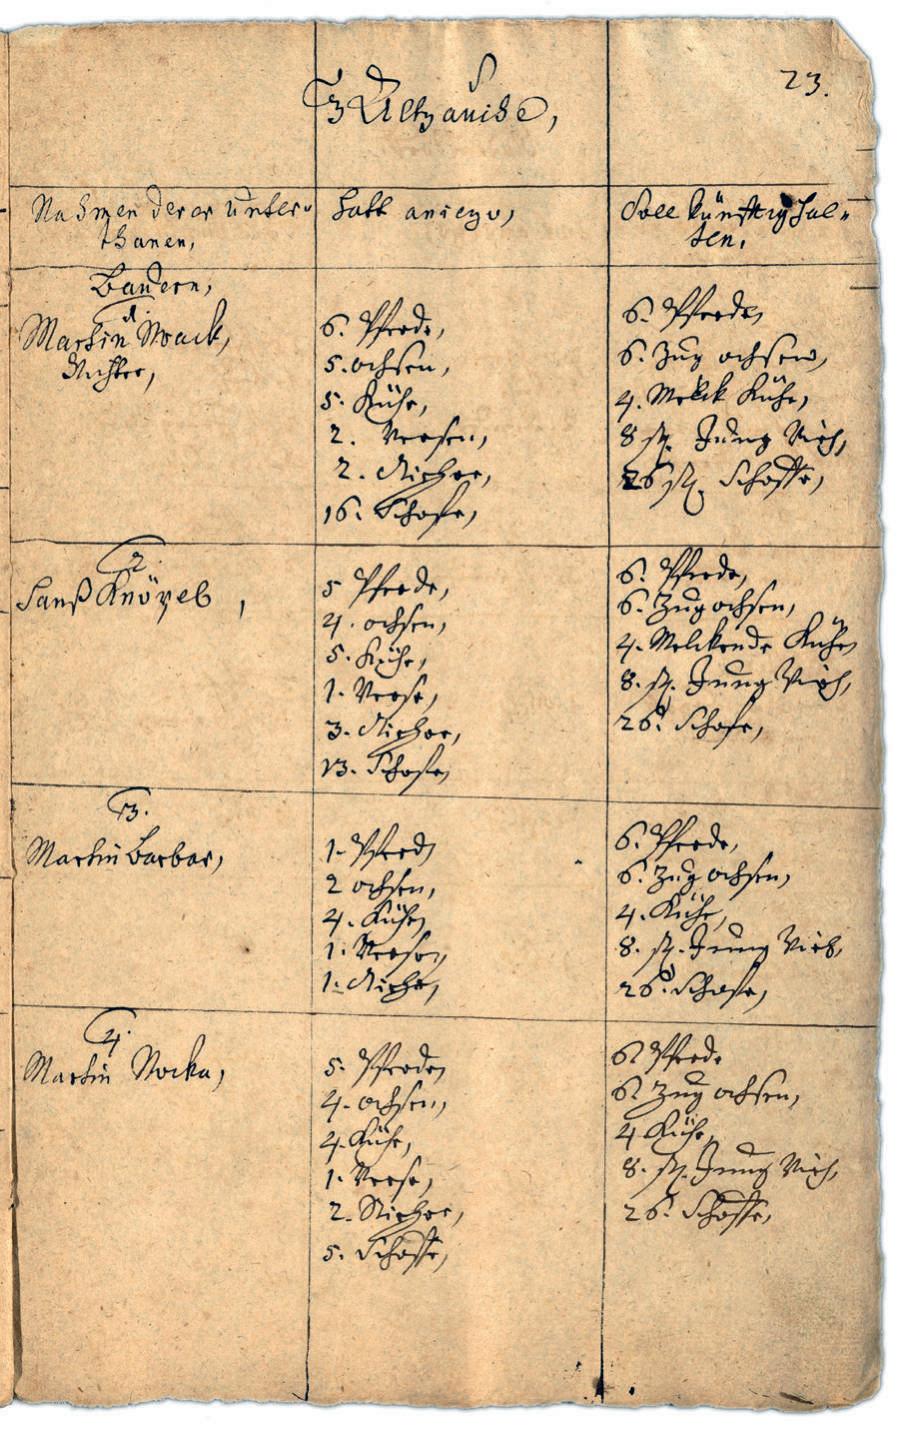 23.
Altzauche,
Nahmen derer Unter-
thanen,
Hatt aniezo,
Soll künfftig hal-
ten.
Bauern,
1.
Martin Noack,
Richter,
6. Pferde,
5. ochsen,
5. Kühe,
2. Versen,
2. Stiehre,
16. Schafe,
6. Pferde,
6. Zug ochsen,
4. Melck Kühe,
8 st. Jung Vieh,
26 st. Schaffe,
2.
Hanß
5 Pferde,
4. ochsen,
5. Kühe,
1. Verse,
3. Stiehre,
13. Schafe,
6. Pferde,
6. Zugochsen,
4. Melckende Kühe,
8. st. Jung Vieh,
26. Schafe,
3.
Martin Barbar,
1. Pferd,
2 ochsen,
4. Kühe,
1. Versen,
1. Stiehr,
6. Pferde,
6. Zug ochsen,
4. Kühe,
8. st. Jung Vieh,
26. Schafe,
4.
Martin Nocka,
5. Pferde,
4. ochsen,
4. Kühe,
1. Verse,
2. Stiehre,
5. Schaffe,
6. Pferde,
6. Zug ochsen,
4 Kühe,
8. st. Jung Vieh,
26. Schaffe,